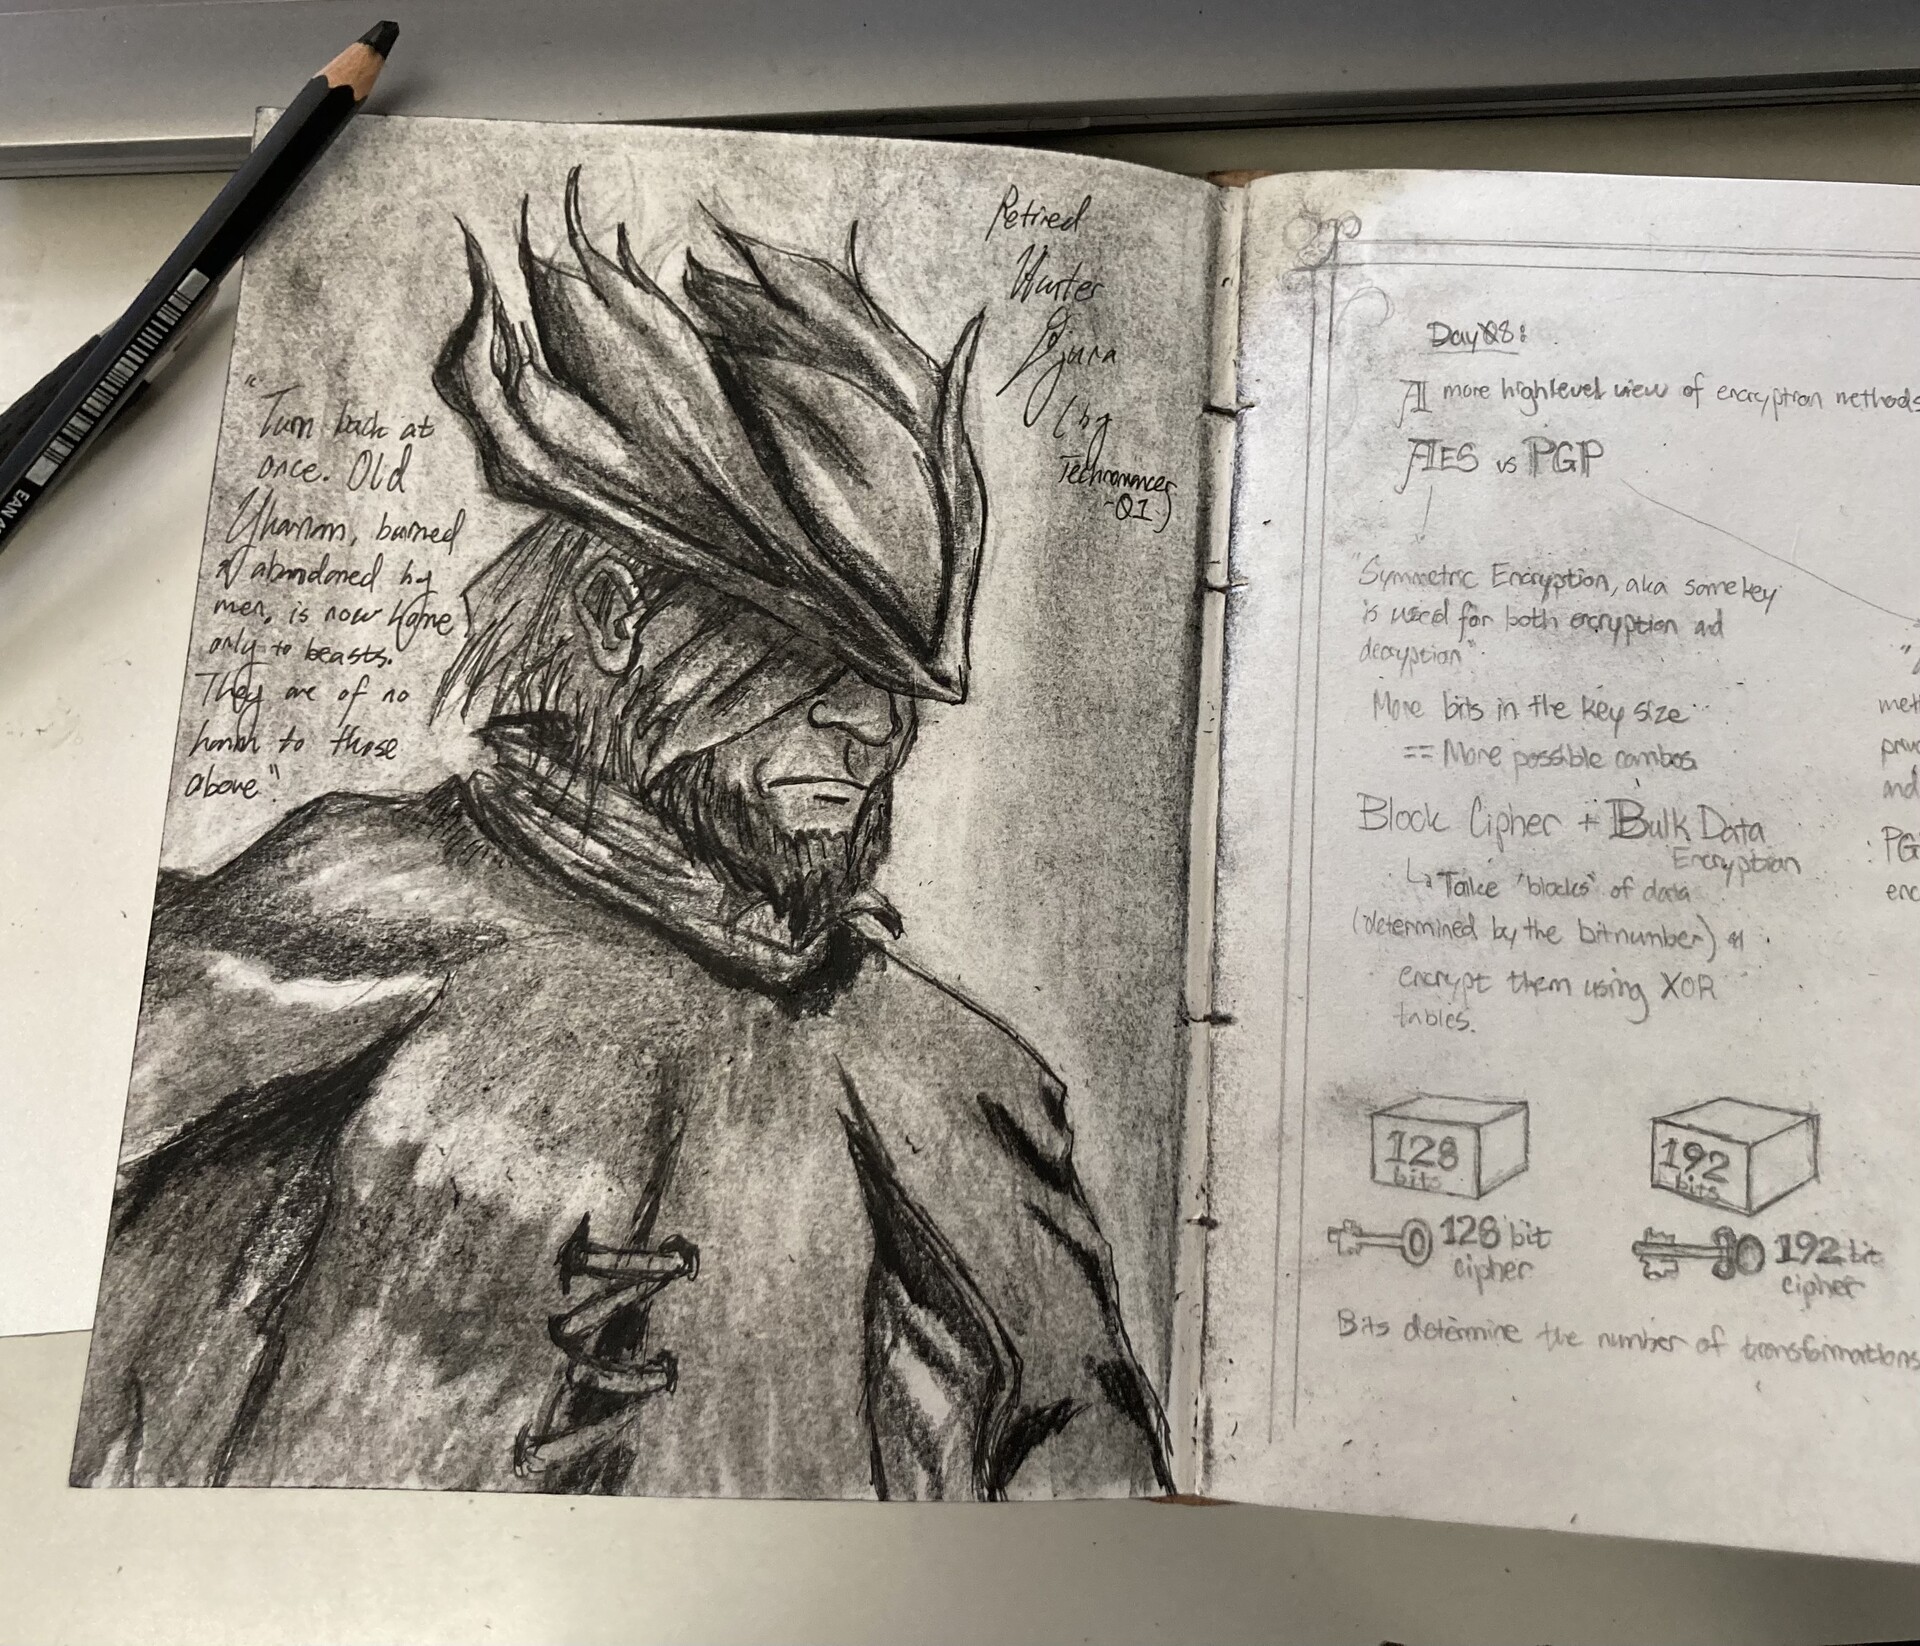 "Turn back at
once. Old
Yharnam, burned
& abandoned by
men, is now home
only to beasts.
They are of no
harm to those
above"
Retired
Hunter
Djura
(by
Technomancer
-Q1)
EAN
Day 08:
A more highlevel view of encryption methods
AES vs PGP
"Symmetric Encryption, aka same key
is used for both encryption and
decryption"
More bits in the key size
== More possible combos
Block Cipher + Bulk Data
Encryption
↳ Take "blocks" of data
(determined by the bitnumber) &
encrypt them using XOR
tables.
128
bits
192
bits
128 bit
cipher
192 bit
cipher
Bits determine the number of transformations
and
PG
enc